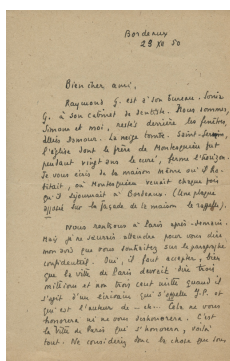 Bordeaux
28 XII 50
Bien cher ami,
Raymond G. est à son bureau. Sonia
G. à son cabinet de dentiste. Nous sommes,
Simone et moi, restés derrière les fenêtres,
allées Damour. La neige tombe. Saint-Seurin,
l'église dont le frère de Montesquieu fut
pendant vingt ans le curé, ferme l'horizon.
Je vous écris de la maison même où il ha-
bitait, où Montesquieu venait chaque fois
qu'il séjournait à Bordeaux. (Une plaque
apposée sur la façade de la maison le rappelle).
Nous rentrons à Paris après-demain.
Mais je ne saurais attendre pour vous dire
mon avis que vous souhaitez sur le paragraphe
confidentiel. Oui, il faut accepter, bien
que la ville de Paris devrait dire trois
millions et non trois cent mille quand il
s'agit d'un écrivain qui s'appelle J.P. et
qui est l'auteur de Cela ne vous
honorera ni ne vous déshonorera. C'est
la Ville de Paris qui s'honorera, voilà
tout. Ne considérez donc la chose que sous